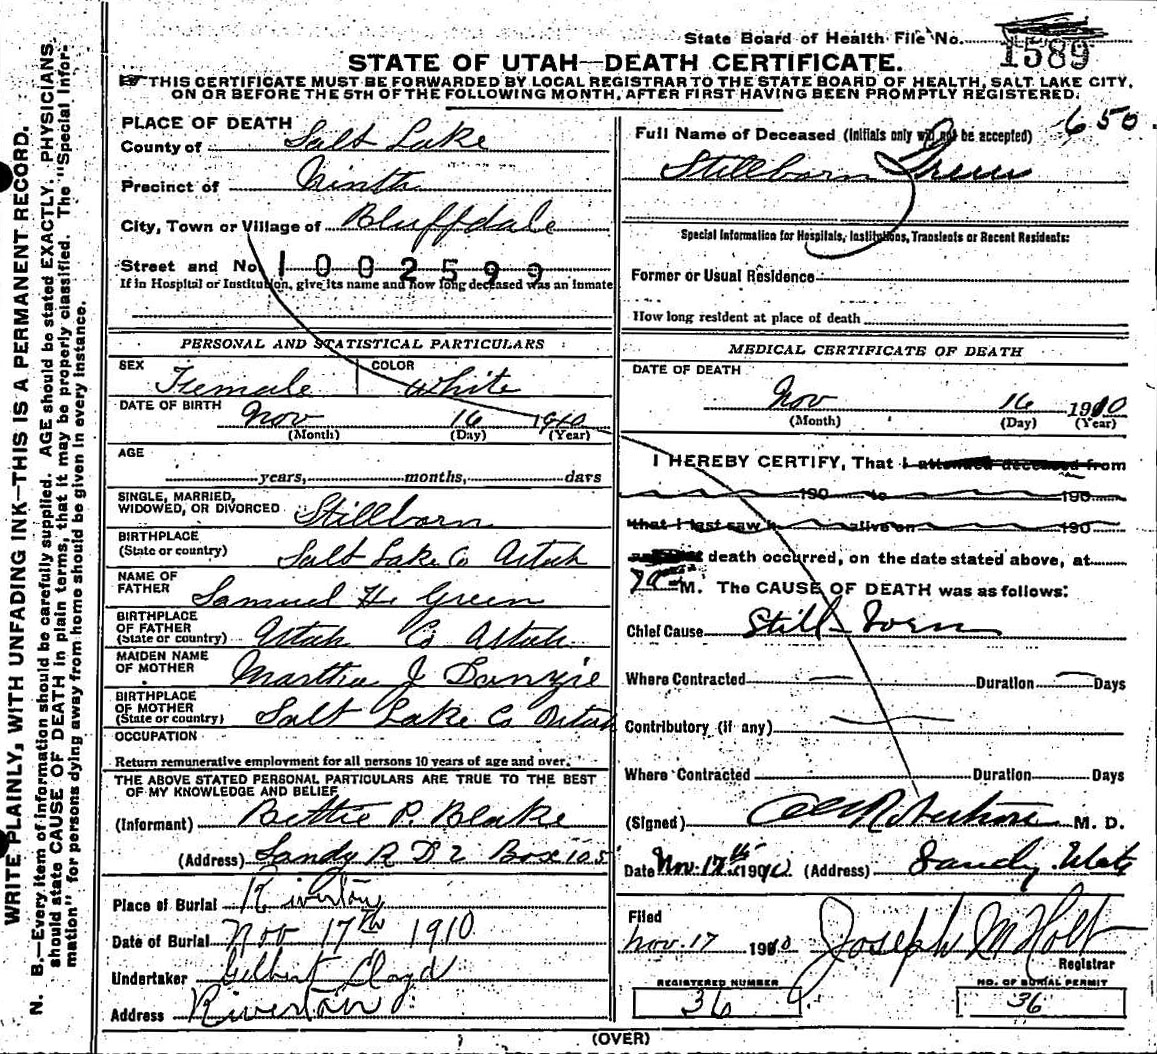 State Board of Health File No. 1589
STATE OF UTAH—DEATH CERTIFICATE.
THIS CERTIFICATE MUST BE FORWARDED BY LOCAL REGISTRAR TO THE STATE BOARD OF HEALTH, SALT LAKE CITY,
ON OR BEFORE THE 5TH OF THE FOLLOWING MONTH, AFTER FIRST HAVING BEEN PROMPTLY REGISTERED.
WRITE PLAINLY, WITH UNFADING INK—THIS IS A PERMANENT RECORD.
N. B.—Every item of information should be carefully supplied. AGE should be stated EXACTLY. PHYSICIANS
should state CAUSE OF DEATH in plain terms, that it may be properly classified. The "Special Infor-
mation" for persons dying away from home should be given in every instance.
PLACE OF DEATH
County of Salt Lake
Precinct of Ninth
City, Town or Village of Bluffdale
Street and No. 1002599
If in Hospital or Institution, give its name and how long deceased was an inmate
PERSONAL AND STATISTICAL PARTICULARS
SEX Female COLOR White
DATE OF BIRTH Nov 16 1910
(Month) (Day) (Year)
AGE
years, months, days
SINGLE, MARRIED,
WIDOWED, OR DIVORCED Stillborn
BIRTHPLACE
(State or country) Salt Lake Co Utah
NAME OF
FATHER Samuel H. Green
BIRTHPLACE
OF FATHER
(State or country) Utah Co Utah
MAIDEN NAME
OF MOTHER Martha J
BIRTHPLACE
OF MOTHER
(State or country) Salt Lake Co Utah
OCCUPATION
Return remunerative employment for all persons 10 years of age and over.
THE ABOVE STATED PERSONAL PARTICULARS ARE TRUE TO THE BEST
OF MY KNOWLEDGE AND BELIEF
(Informant) Bettie P. Blake
(Address) Sandy R D 2 Box 105
Place of Burial Riverton
Date of Burial Nov 17th 1910
Undertaker Gilbert Lloyd
Address Riverton
650
Full Name of Deceased (Initials only will not be accepted)
Stillborn Green
Special Information for Hospitals, Institutions, Transients or Recent Residents:
Former or Usual Residence
How long resident at place of death
MEDICAL CERTIFICATE OF DEATH
DATE OF DEATH
Nov 16 1910
(Month) (Day) (Year)
I HEREBY CERTIFY, That I attended deceased from
190 to 190
that I last saw h alive on 190
death occurred, on the date stated above, at
M. The CAUSE OF DEATH was as follows:
Chief Cause Still born
Where Contracted Duration Days
Contributory (if any)
Where Contracted Duration Days
(Signed) Robertson M. D.
Date Nov. 17th 1910 (Address) Sandy Utah
Filed
Nov. 17 1910 Joseph M Holt
Registrar
REGISTERED NUMBER
36
NO. OF BURIAL PERMIT
36
(OVER)